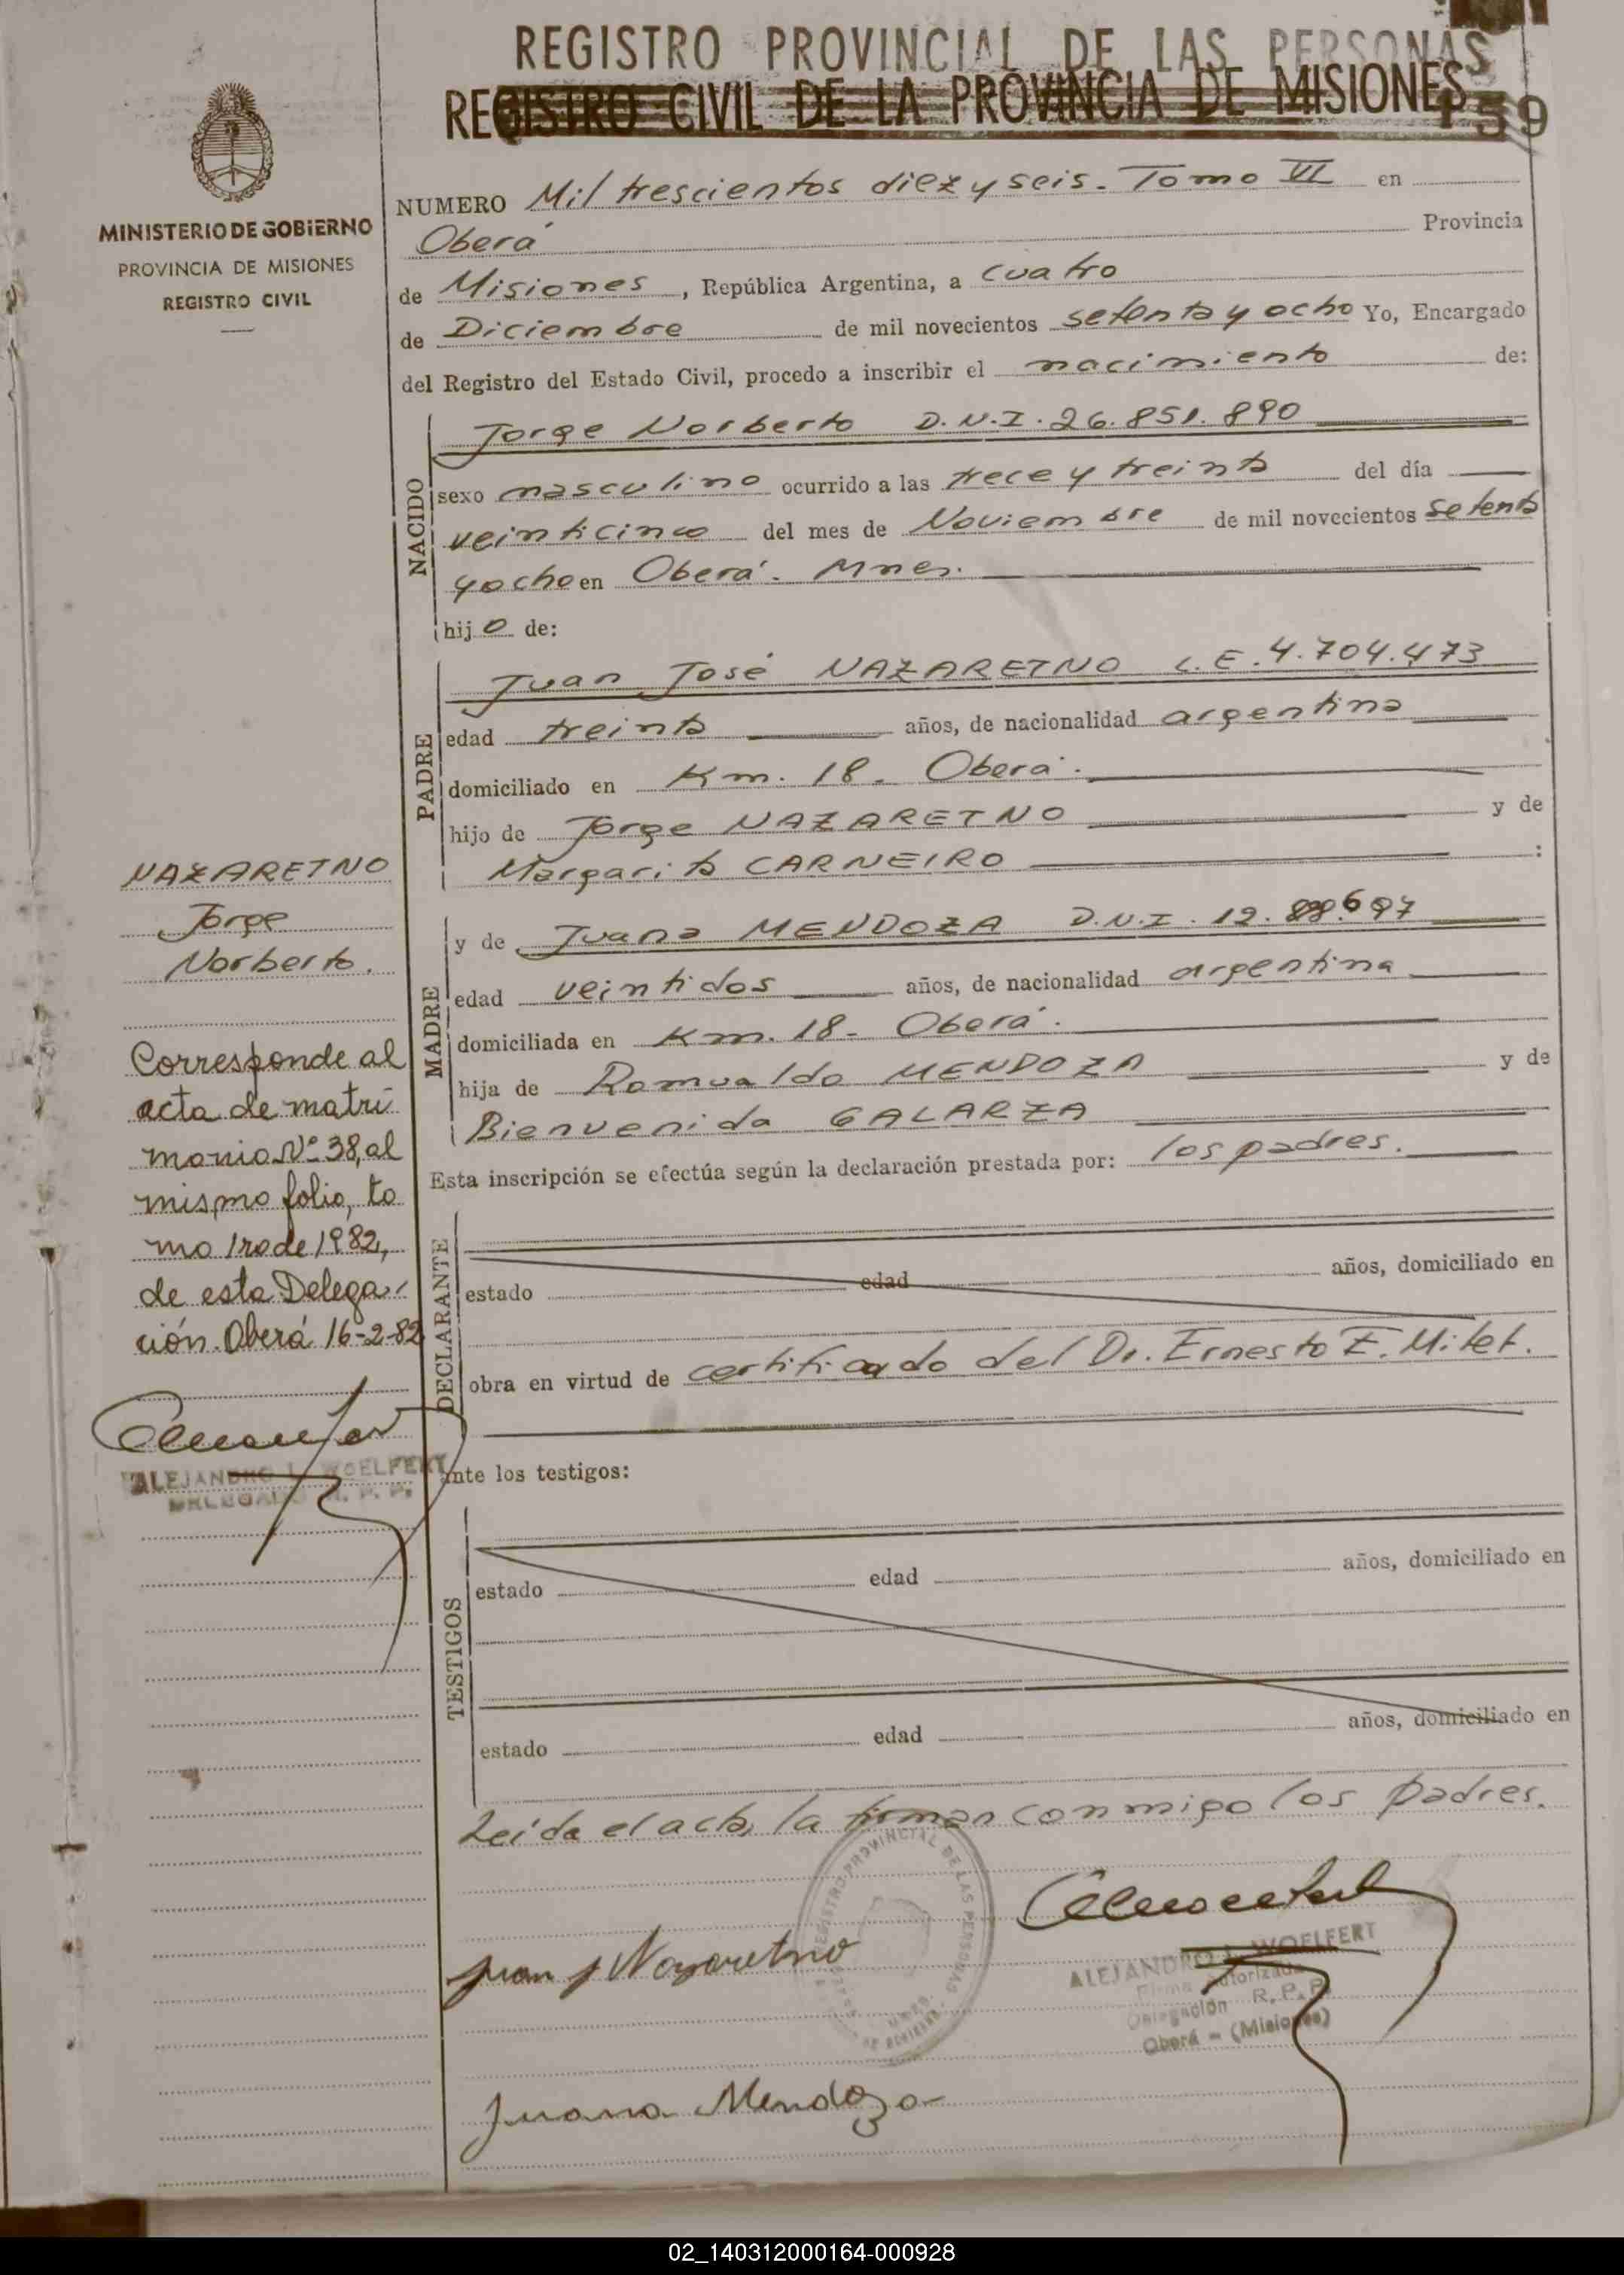 REGISTRO PROVINCIAL DE LAS PERSONAS
REGISTRO CIVIL DE LA PROVINCIA DE MISIONES
159
MINISTERIO DE GOBIERNO
PROVINCIA DE MISIONES
REGISTRO CIVIL
NUMERO Mil trescientos diez y seis. Tomo VI en
Oberá Provincia
de Misiones, República Argentina, a cuatro
de Diciembre de mil novecientos setenta y ocho Yo, Encargado
del Registro del Estado Civil, procedo a inscribir el nacimiento de:
NACIDO
Jorge Norberto D.N.I. 26.851.890
sexo masculino ocurrido a las trece y treinta del día
veinticinco del mes de Noviembre de mil novecientos setenta
y ocho en Oberá. Mnes.
hijo de:
PADRE
Juan José NAZARETNO L.E. 4.704.473
edad treinta años, de nacionalidad argentina
domiciliado en Km. 18. Oberá.
hijo de Jorge NAZARETNO y de
Margarita CARNEIRO :
MADRE
y de Juana MENDOZA D.N.I. 12.
edad veintidos años, de nacionalidad argentina
domiciliada en Km. 18- Oberá.
hija de Romualdo MENDOZA y de
Bienvenida GALARZA
Esta inscripción se efectúa según la declaración prestada por: los padres.
DECLARANTE
estado edad años, domiciliado en
obra en virtud de certificado del Dr. Ernesto E. Mitet.
ante los testigos:
TESTIGOS
estado edad años, domiciliado en
estado edad años, domiciliado en
Leída el acta, la firman conmigo los padres.
Juan J Nazaretno
Juana Mendoza
REGISTRO PROVINCIAL DE LAS PERSONAS
ALEJANDRO L. WOELFERT
Firma Autorizada
Delegación R.P.P.
Oberá - (Misiones)
NAZARETNO
Jorge
Norberto.
Corresponde al
acta de matri
monio Nº 38, al
mismo folio, to
mo 1ro de 1982,
de esta Delega
ción. Oberá 16-2-82
ALEJANDRO L. WOELFERT
DELEGADO R. P. P.
02_140312000164-000928